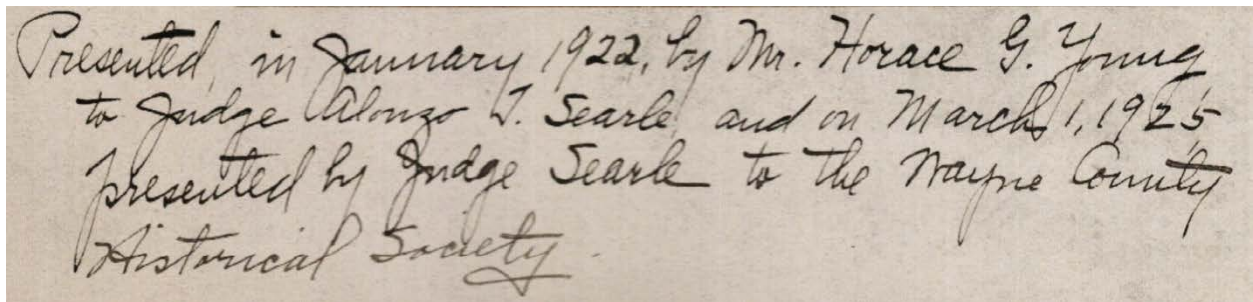 Presented, in January 1922, by Mr. Horace G. Young
to Judge Alonzo T. Searle, and on March 1, 1925
presented by Judge Searle to the Wayne County
Historical Society.